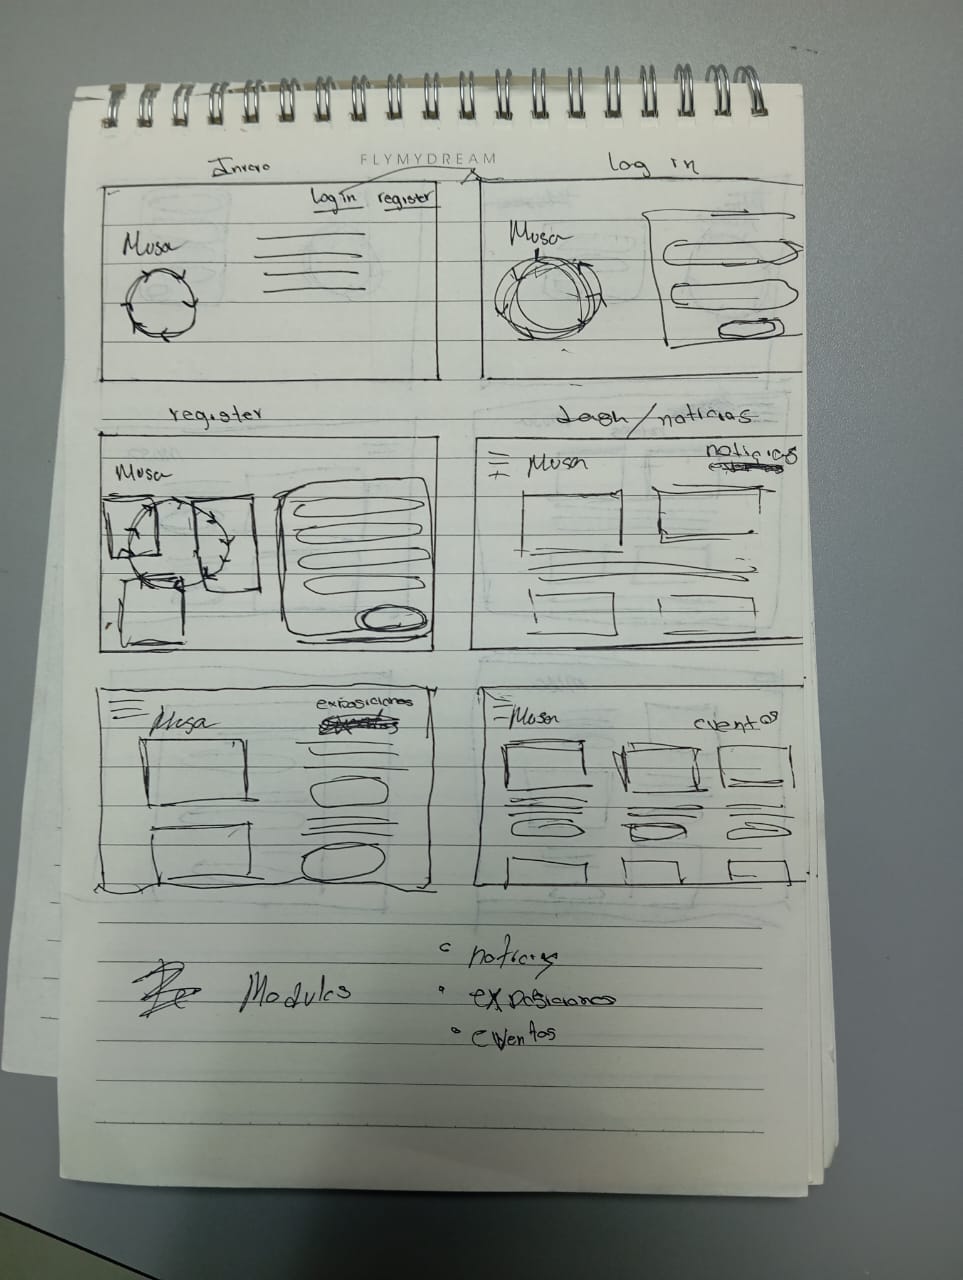 FLYMYDREAM
Inicio
log in
log in register
Musa
Musa
register
dash/noticias
Musa
Musa
noticias
Musa
exposiciones
Musa
eventos
Modulos
noticias
exposiciones
eventos